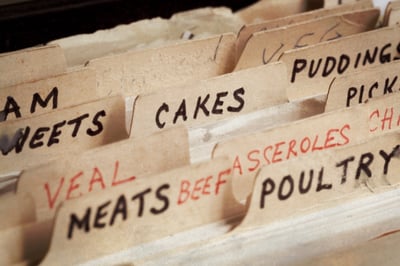 VEG
PUDDINGS
AM
CAKES
PICK
WEETS
ASSEROLES
CH
VEAL
BEEF
MEATS
POULTRY